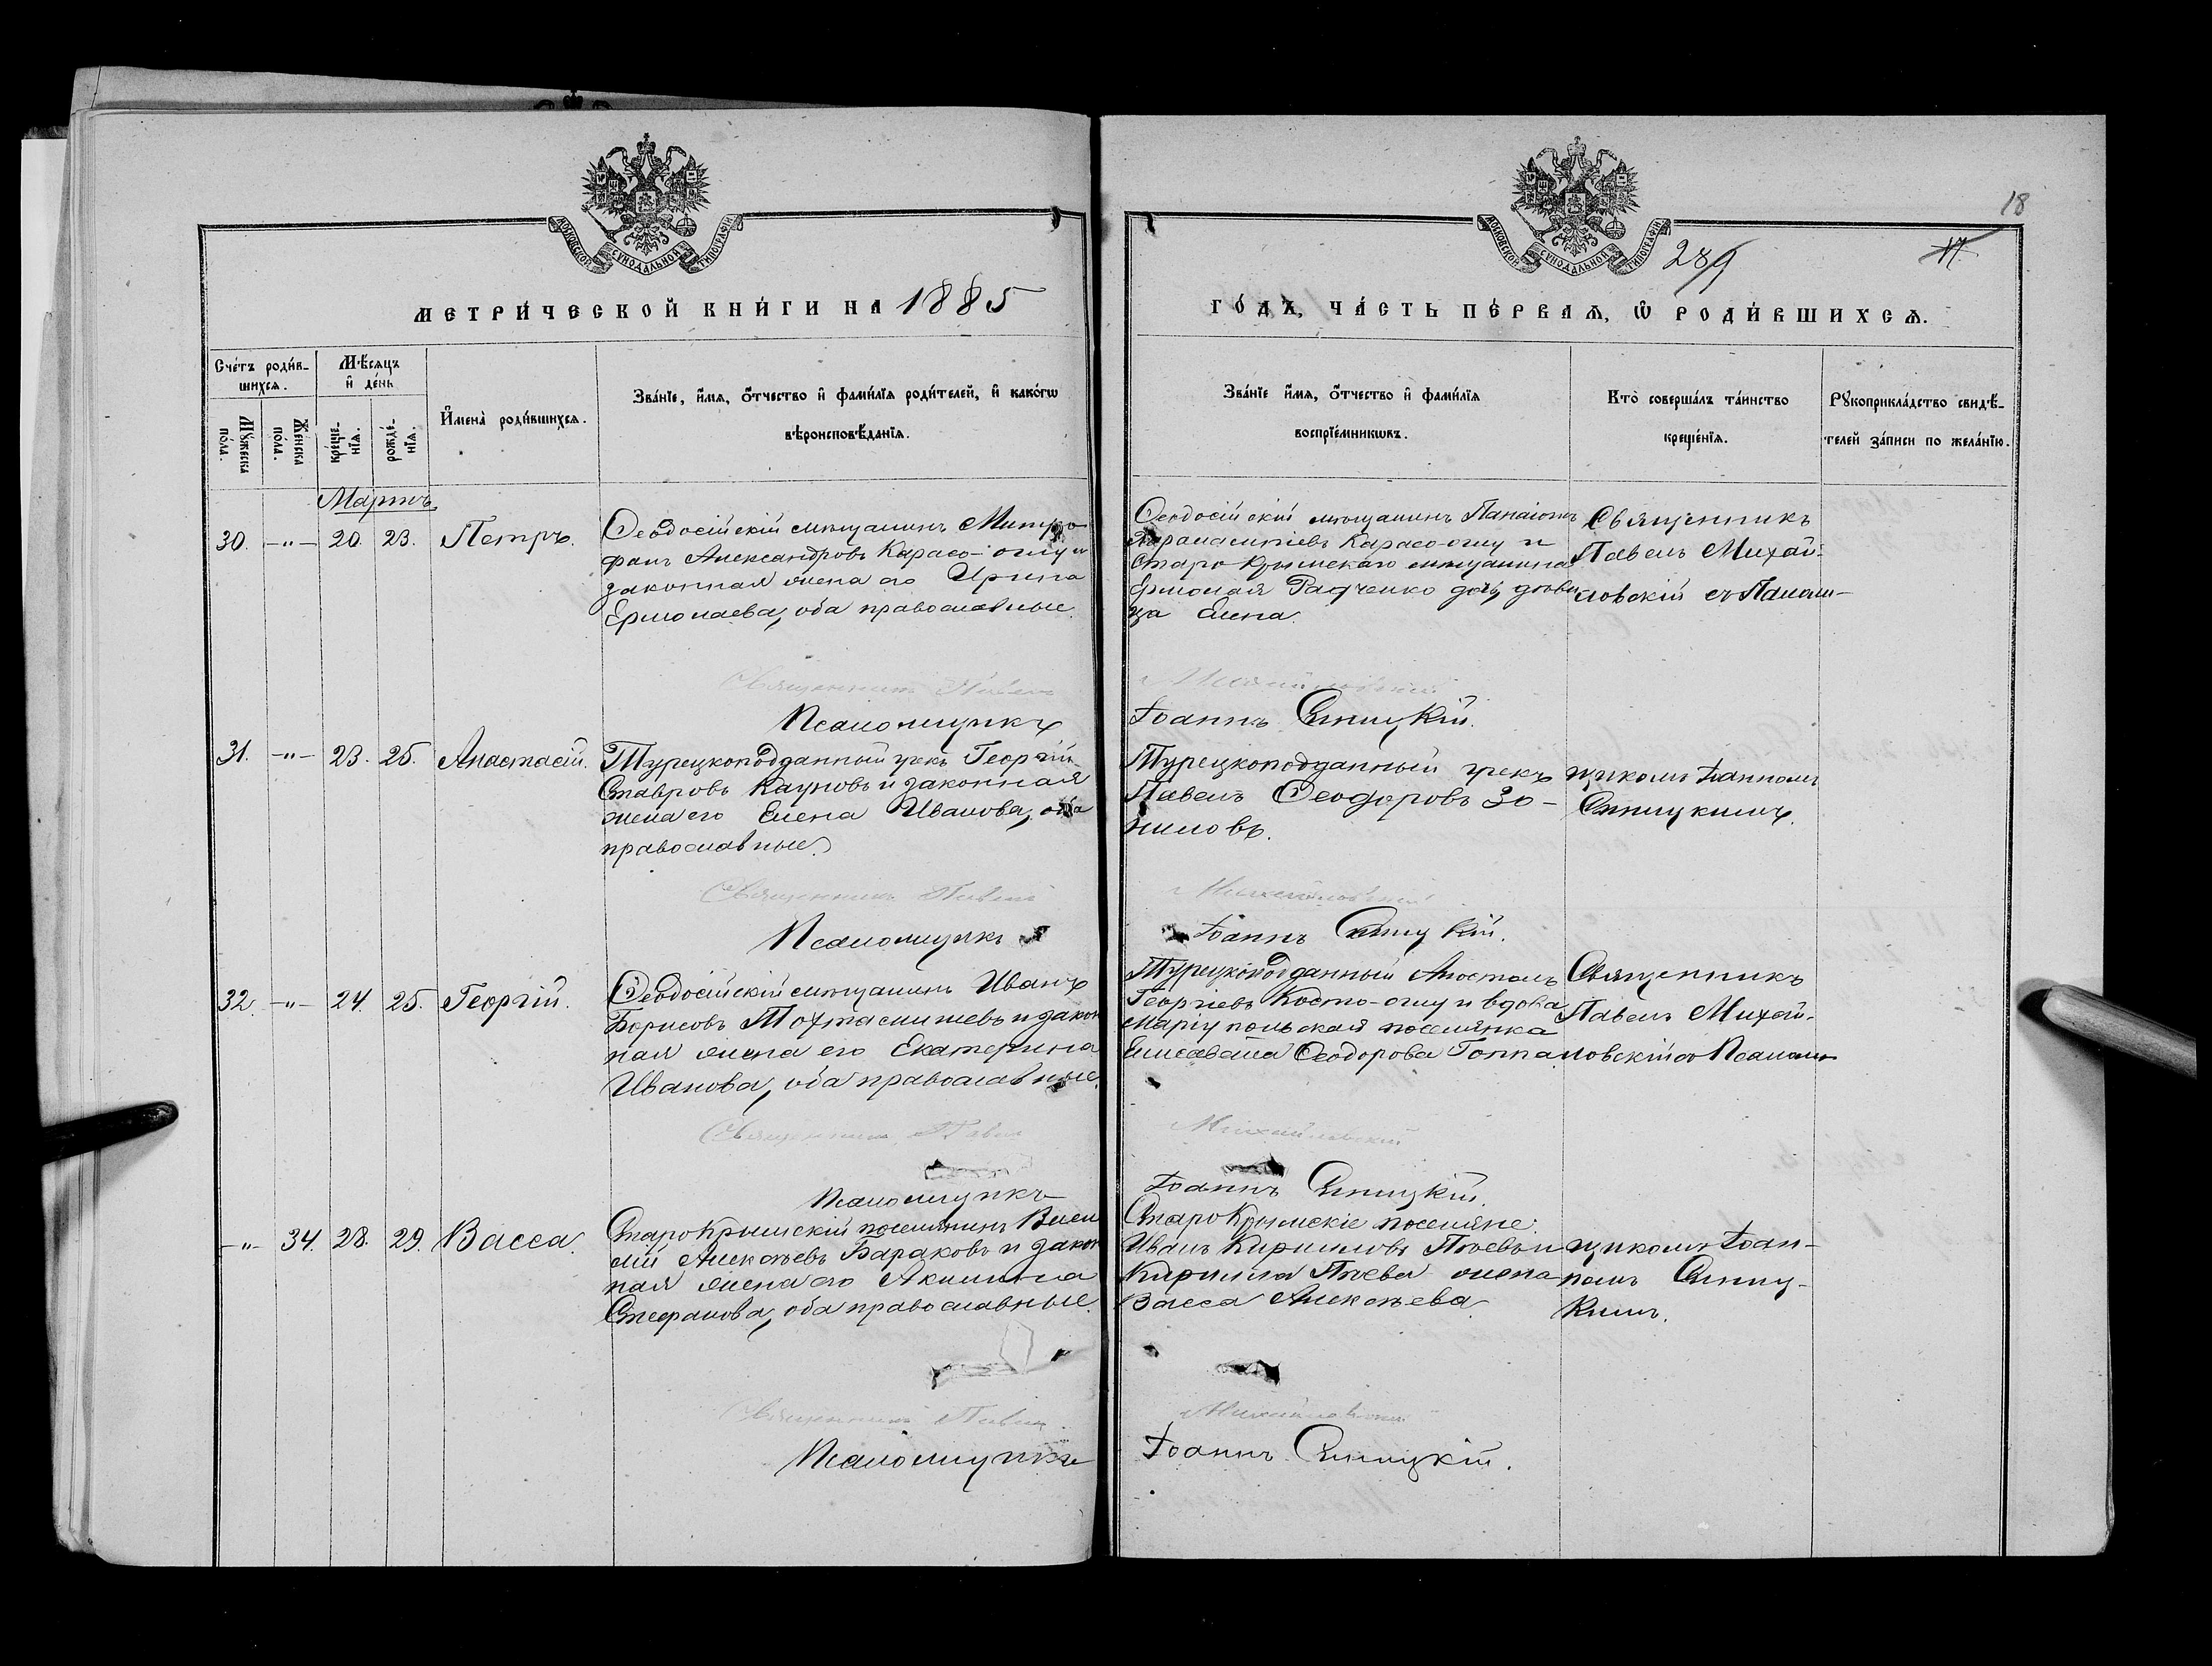 18
17
289
МОСКОВСКОЙ СѴНОДАЛЬНОЙ ТИПОГРАФІИ
МОСКОВСКОЙ СѴНОДАЛЬНОЙ ТИПОГРАФІИ
МЕТРИ́ЧЕСКОЙ КНИ́ГИ НА 1885
ГО́ДЪ, ЧА́СТЬ ПЕ́РВАѦ, Ѽ РОДИ́ВШИХСѦ.
Сче́тъ роди́в-
шихсѧ.
Мꙋ́жеска по́ла.
Же́нска по́ла.
Мѣ́сѧцъ
и҆ де́нь
рожде́-нїѧ.
креще́-нїѧ.
И҆мена̀ роди́вшихсѧ.
Зва́нїе, и҆́мѧ, ѻ҆́тчество и҆ фами́лїѧ роди́телей, и҆ како́гѡ
вѣроисповѣ́данїѧ.
Зва́нїе и҆́мѧ, ѻ҆́тчество и҆ фами́лїѧ
воспрїе́мникѡвъ.
Кто̀ соверша́лъ та́инство
креще́нїѧ.
Рꙋкоприкла́дство свидѣ́-
телей за́писи по жела́нїю.
Мартъ
30. -"- 20. 23. Петръ.
Ѳеодосійскій мѣщанинъ Митро
фанъ Александровъ Карасо-оглу и
законная жена его Ирина
Ермолаева, оба православные.
Ѳеодосійскій мѣщанинъ Панаіотъ
Карасо-оглу и
Старо Крымскаго мѣщанина
Ермолая Радченко дочь дѣви
ца Елена.
Священникъ
Павелъ Михай-
ловскій съ Псалом-
Священникъ Павелъ
Михайловскій
Псаломщикъ
Іоаннъ Синицкій.
31. -"- 23. 25. Анастасій.
Турецкоподданный грекъ Георгій
Ставровъ Кауновъ и законная
жена его Елена Иванова, оба
православные.
Турецкоподданный грекъ
Павелъ Ѳеодоровъ Зо-
ниловъ.
щикомъ Іоанномъ
Синицкимъ.
Священникъ Павелъ
Михайловскій
Псаломщикъ
Іоаннъ Синицкій.
32. -"- 24. 25. Георгій.
Ѳеодосійскій мѣщанинъ Иванъ
Борисовъ Тохтамышевъ и закон
ная жена его Екатерина
Иванова, оба православные.
Турецкоподданный Апостолъ
Георгіевъ Косто-оглу и вдова
Маріупольская поселянка
Елисавета Ѳеодорова Топпа
Священникъ
Павелъ Михай-
ловскій съ Псалом-
Священникъ Павелъ
Михайловскій
Псаломщикъ
Іоаннъ Синицкій.
-"- 34. 28. 29. Васса.
Старо Крымскій поселянинъ Васи
лій Алексѣевъ Бараковъ и закон
ная жена его Акилина
Стефанова, оба православные.
Старо Крымскіе поселяне:
Иванъ Кирилловъ Пѣевъ и
Кирилла Пѣева жена
Васса Алексѣева
щикомъ Іоан-
номъ Синиц-
кимъ.
Священникъ Павелъ
Михайловскій
Псаломщикъ
Іоаннъ Синицкій.